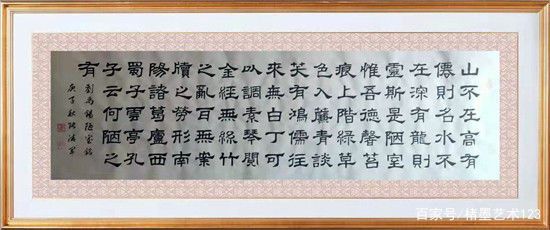 山不在高有
僊則名水不
在深有龍則
靈斯是陋室
惟吾德馨苔
痕上階綠草
色入簾青談
笑有鴻儒往
來無白丁可
以調素琴閱
金經無絲竹
之亂耳無案
牘之勞形南
陽諸葛廬西
蜀子雲亭孔
子云何陋之
有
劉禹錫陋室銘
庚子秋
百家号/楮墨艺术123